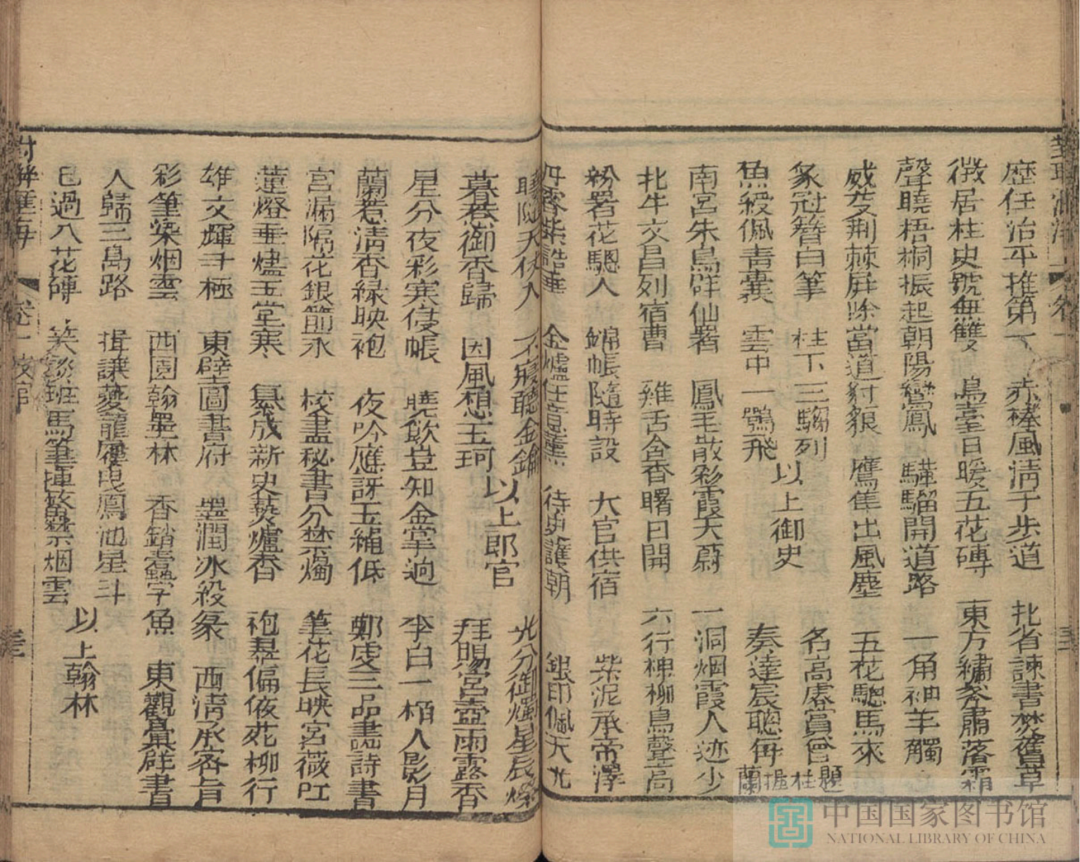 歷任治平推第一 赤棒風清于步道 北省諫書焚舊草
徵居柱史號無雙 烏臺日暖五花磚 東方繡豸肅落霜
聲曉梧桐振起朝陽鸞鳳 驊騮開道路 一角神羊觸
威芟荆棘屏除當道豺狼 鷹隼出風塵 五花驄馬來
豸冠簪白筆 柱下三驄列 以上御史 名高處賞曾題柱
魚殺佩青囊 雲中一鶚飛 奏達宸聰再握蘭
南宮朱鳥群仙署 鳳毛散彩霞天蔚 一洞烟霞人迹少
北斗文昌列宿曹 雞舌含香曙日開 六行神柳鳥聲高
粉署花驄人 錦帳隨時設 大官供宿 柴泥承帝澤
丹霄紫誥華 金爐任意薰 待史護朝 銀印佩天光
天仗入 不寢聽金鑰 光分御燭星辰燦
暮惹御香歸 因風想玉珂 以上郎官 拜賜宮壺雨露香
星分夜彩寒侵帳 曉飲豈知金掌逈 李白一栢人影月
蘭惹清香緑映袍 夜吟應訝玉繩低 鄭虔三品畵詩書
宮漏隔花銀箭永 校盡秘書分禁燭 筆花長映宮薇紅
蓮燈垂燼玉堂寒 纂成新史爇爐香 袍惹偏依苑柳行
雄文輝斗極 東壁圖書府 墨潤冰殺篆 西清承客旨
彩筆染烟雲 西園翰墨林 香銷蠹字魚 東觀纂群書
人歸三島路 揖讓夔龍履曳鳳池星斗
已過八花磚 笑談班馬筆揮 烟雲 以上翰林
對聯滙海 卷一